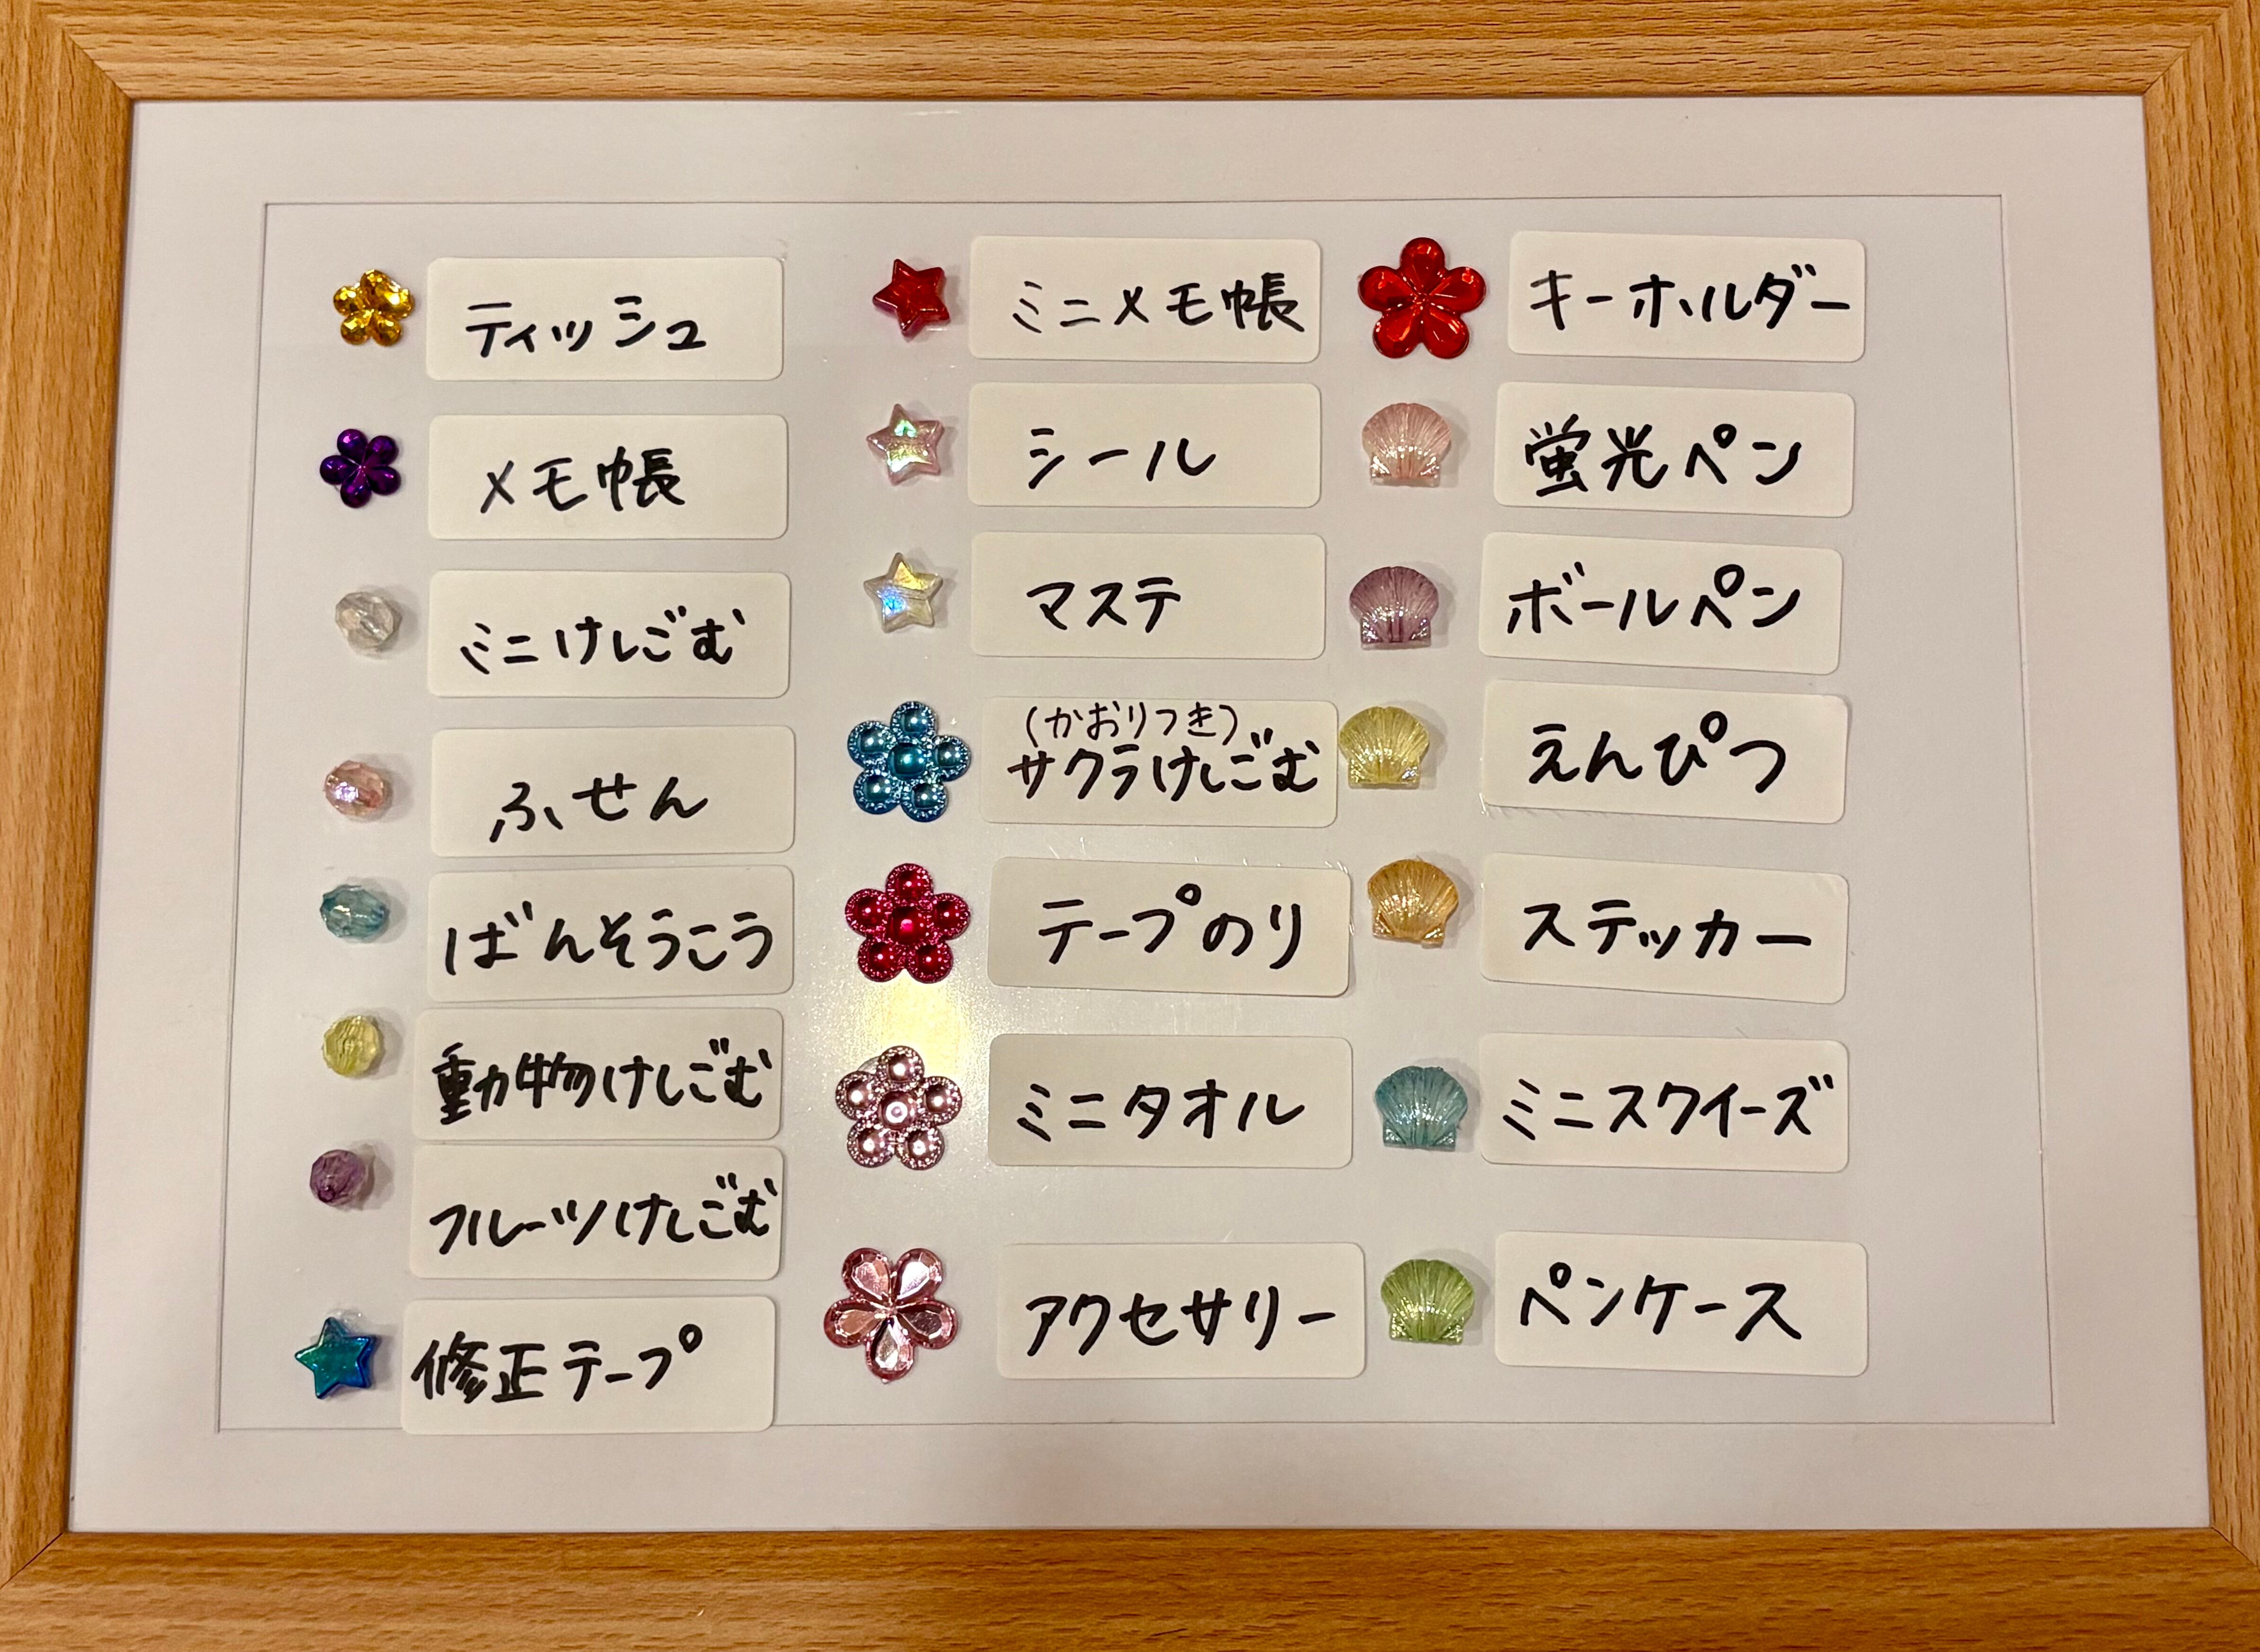 ティッシュ
メモ帳
ミニけしごむ
ふせん
ばんそうこう
動物けしごむ
フルーツけしごむ
修正テープ
ミニメモ帳
シール
マステ
(かおりつき)
サクラけしごむ
テープのり
ミニタオル
アクセサリー
キーホルダー
蛍光ペン
ボールペン
えんぴつ
ステッカー
ミニスクイーズ
ペンケース